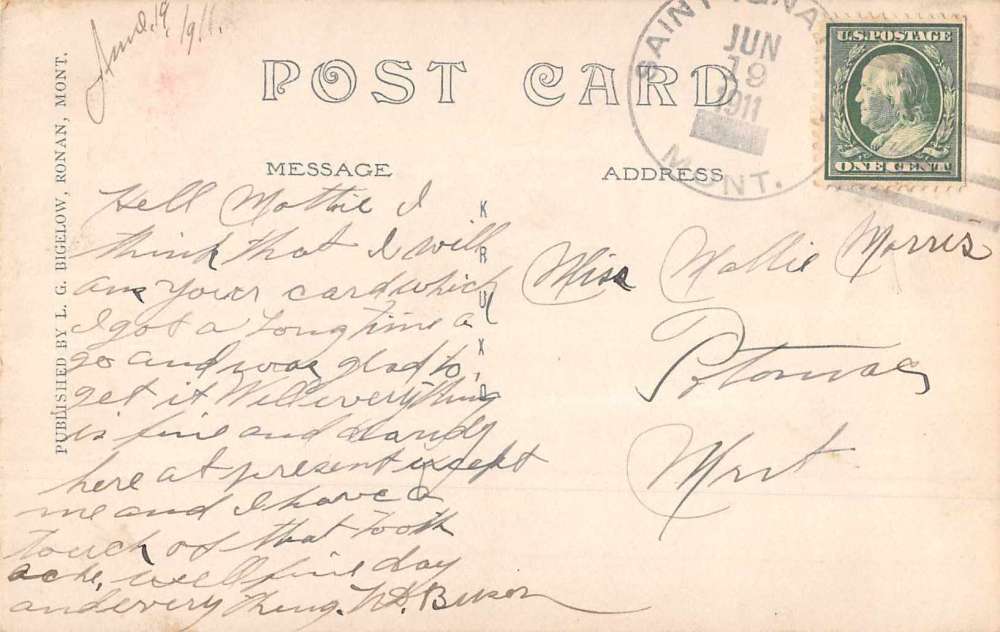 June. 19, 1911.
POST CARD
SAINT IGNA
JUN
19
1911
MONT.
U.S. POSTAGE
ONE CENT
MESSAGE
ADDRESS
PUBLISHED BY L. G. BIGELOW, RONAN, MONT.
KRUXO
Hell Mattie I
think that I will
ans your card which
I got a long time a
go and was glad to
get it Well everything
is fine and dandy
here at present except
me and I have a
touch of that tooth
ache, well fine day
and every thing.
Miss Mattie Morris
Potomac
Mont